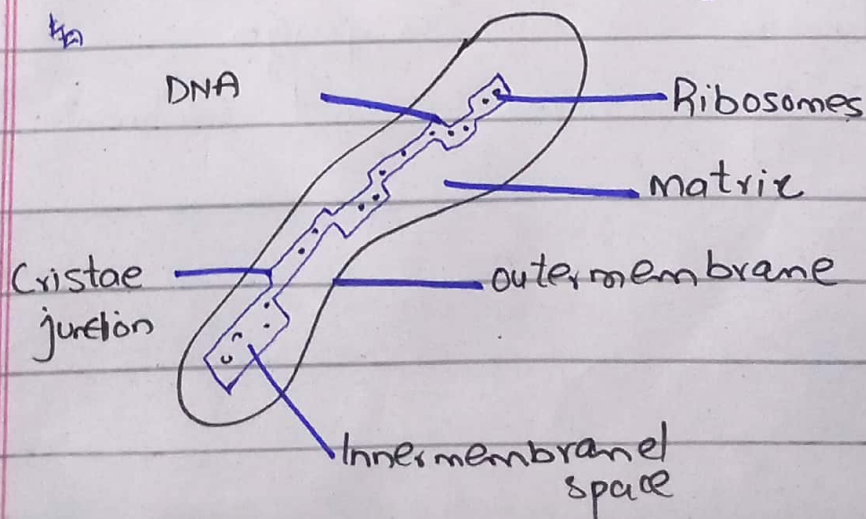 DNA
Ribosomes
matrix
Cristae
junction
outermembrane
Innermembranel
space